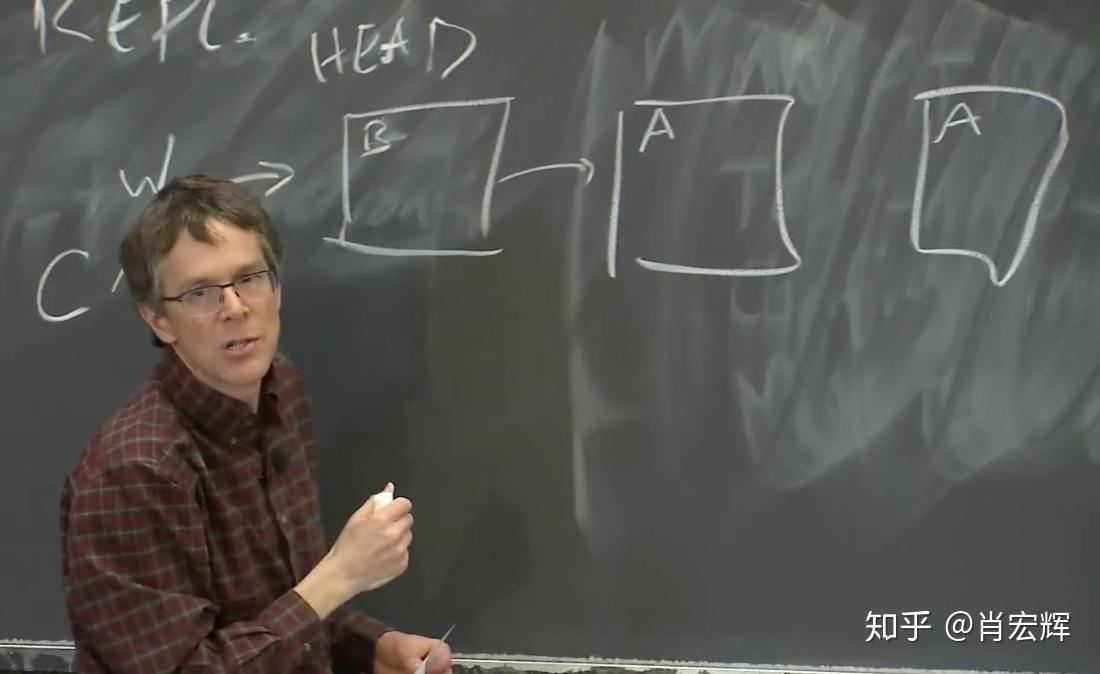 REPL.
HEAD
B
A
A
W
C
知乎 @肖宏辉